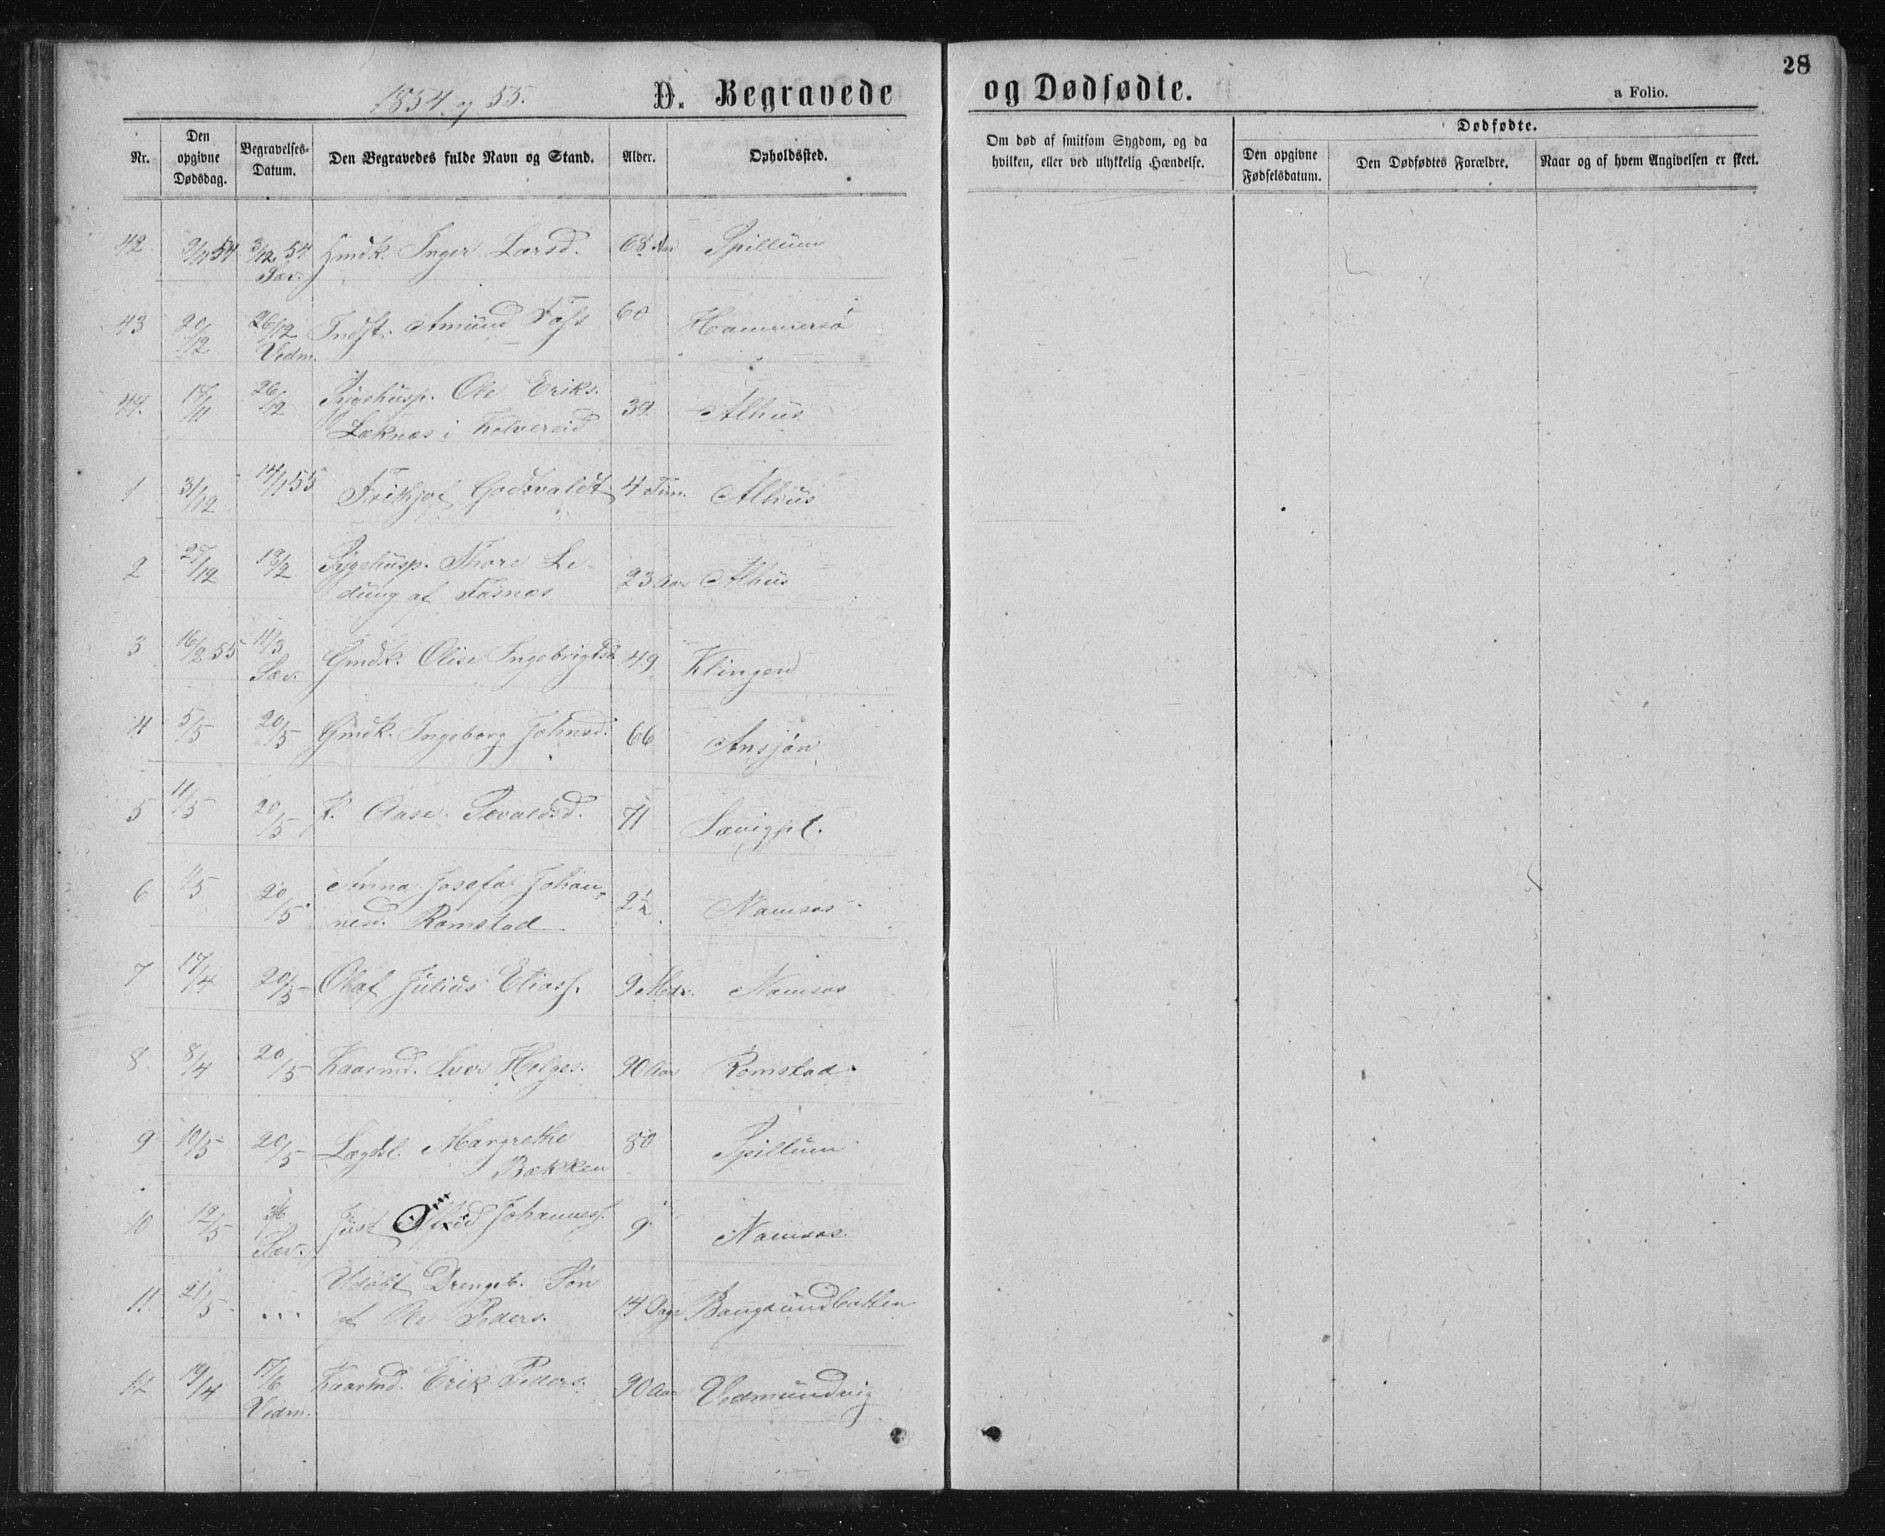 28
1854 og 55.
D. Begravede
og Dødfødte.
a Folio.
Nr.
Den opgivne Dødsdag.
Begravelses-Datum.
Den Begravedes fulde Navn og Stand.
Alder.
Opholdssted.
Om død af smitsom Sygdom, og da hvilken, eller ved ulykkelig Hændelse.
Dødfødte.
Den opgivne Fødselsdatum.
Den Dødfødtes Forældre.
Naar og af hvem Angivelsen er skeet.
42. 9/11 54 3/12 54 Sæv. Gmdk. Inger Larsd. 68 Aar Spillum
43 20/12 26/12 Vedm. Indst. Amund 60 Hammersø
44. 17/11 26/12 Sygehusp. Ole Eriks. 39. Alhus
Leknæs i Kolvereid
1 31/12 14/1 55 Frithjof Godtvaldt 4 Tim. Alhus
2 27/12 18/2 Sygehusp. Thore Le- 23 Aar Alhus
dung af Fosnæs
3 16/2 55 11/3 Sæv. Gmdk. Olise Ingebrigtsd. 49 Klingen
4 5/5 20/5 Gmdk. Ingeborg Johnsd. 66 Ansjøn
5 11/5 20/5 K. Aase 71 Sævigpl.
6 1/5 20/5 Anna Josefa Johan- 2½ Namsos
nesd. Romstad
7 17/4 20/5 Olaf Julius Eliass. 9 Mdr. Namsos
8. 8/4 20/5 Kaarmd. Iver Helges. 90 Aar Romstad
9 10/5 20/5 Lægdsl. Margrethe 80 Spillum
Bækken
10 12/5 3/6 Sæv. Just Johanness. 9 Namsos
11. 21/5 ... Udøbt Drengeb. Søn 14 Dage Bangsundbakken
af Ole Peders.
12 19/4 17/6 Vedm. Kaarmd. Erik Peders. 90 Aar Vedmundvig